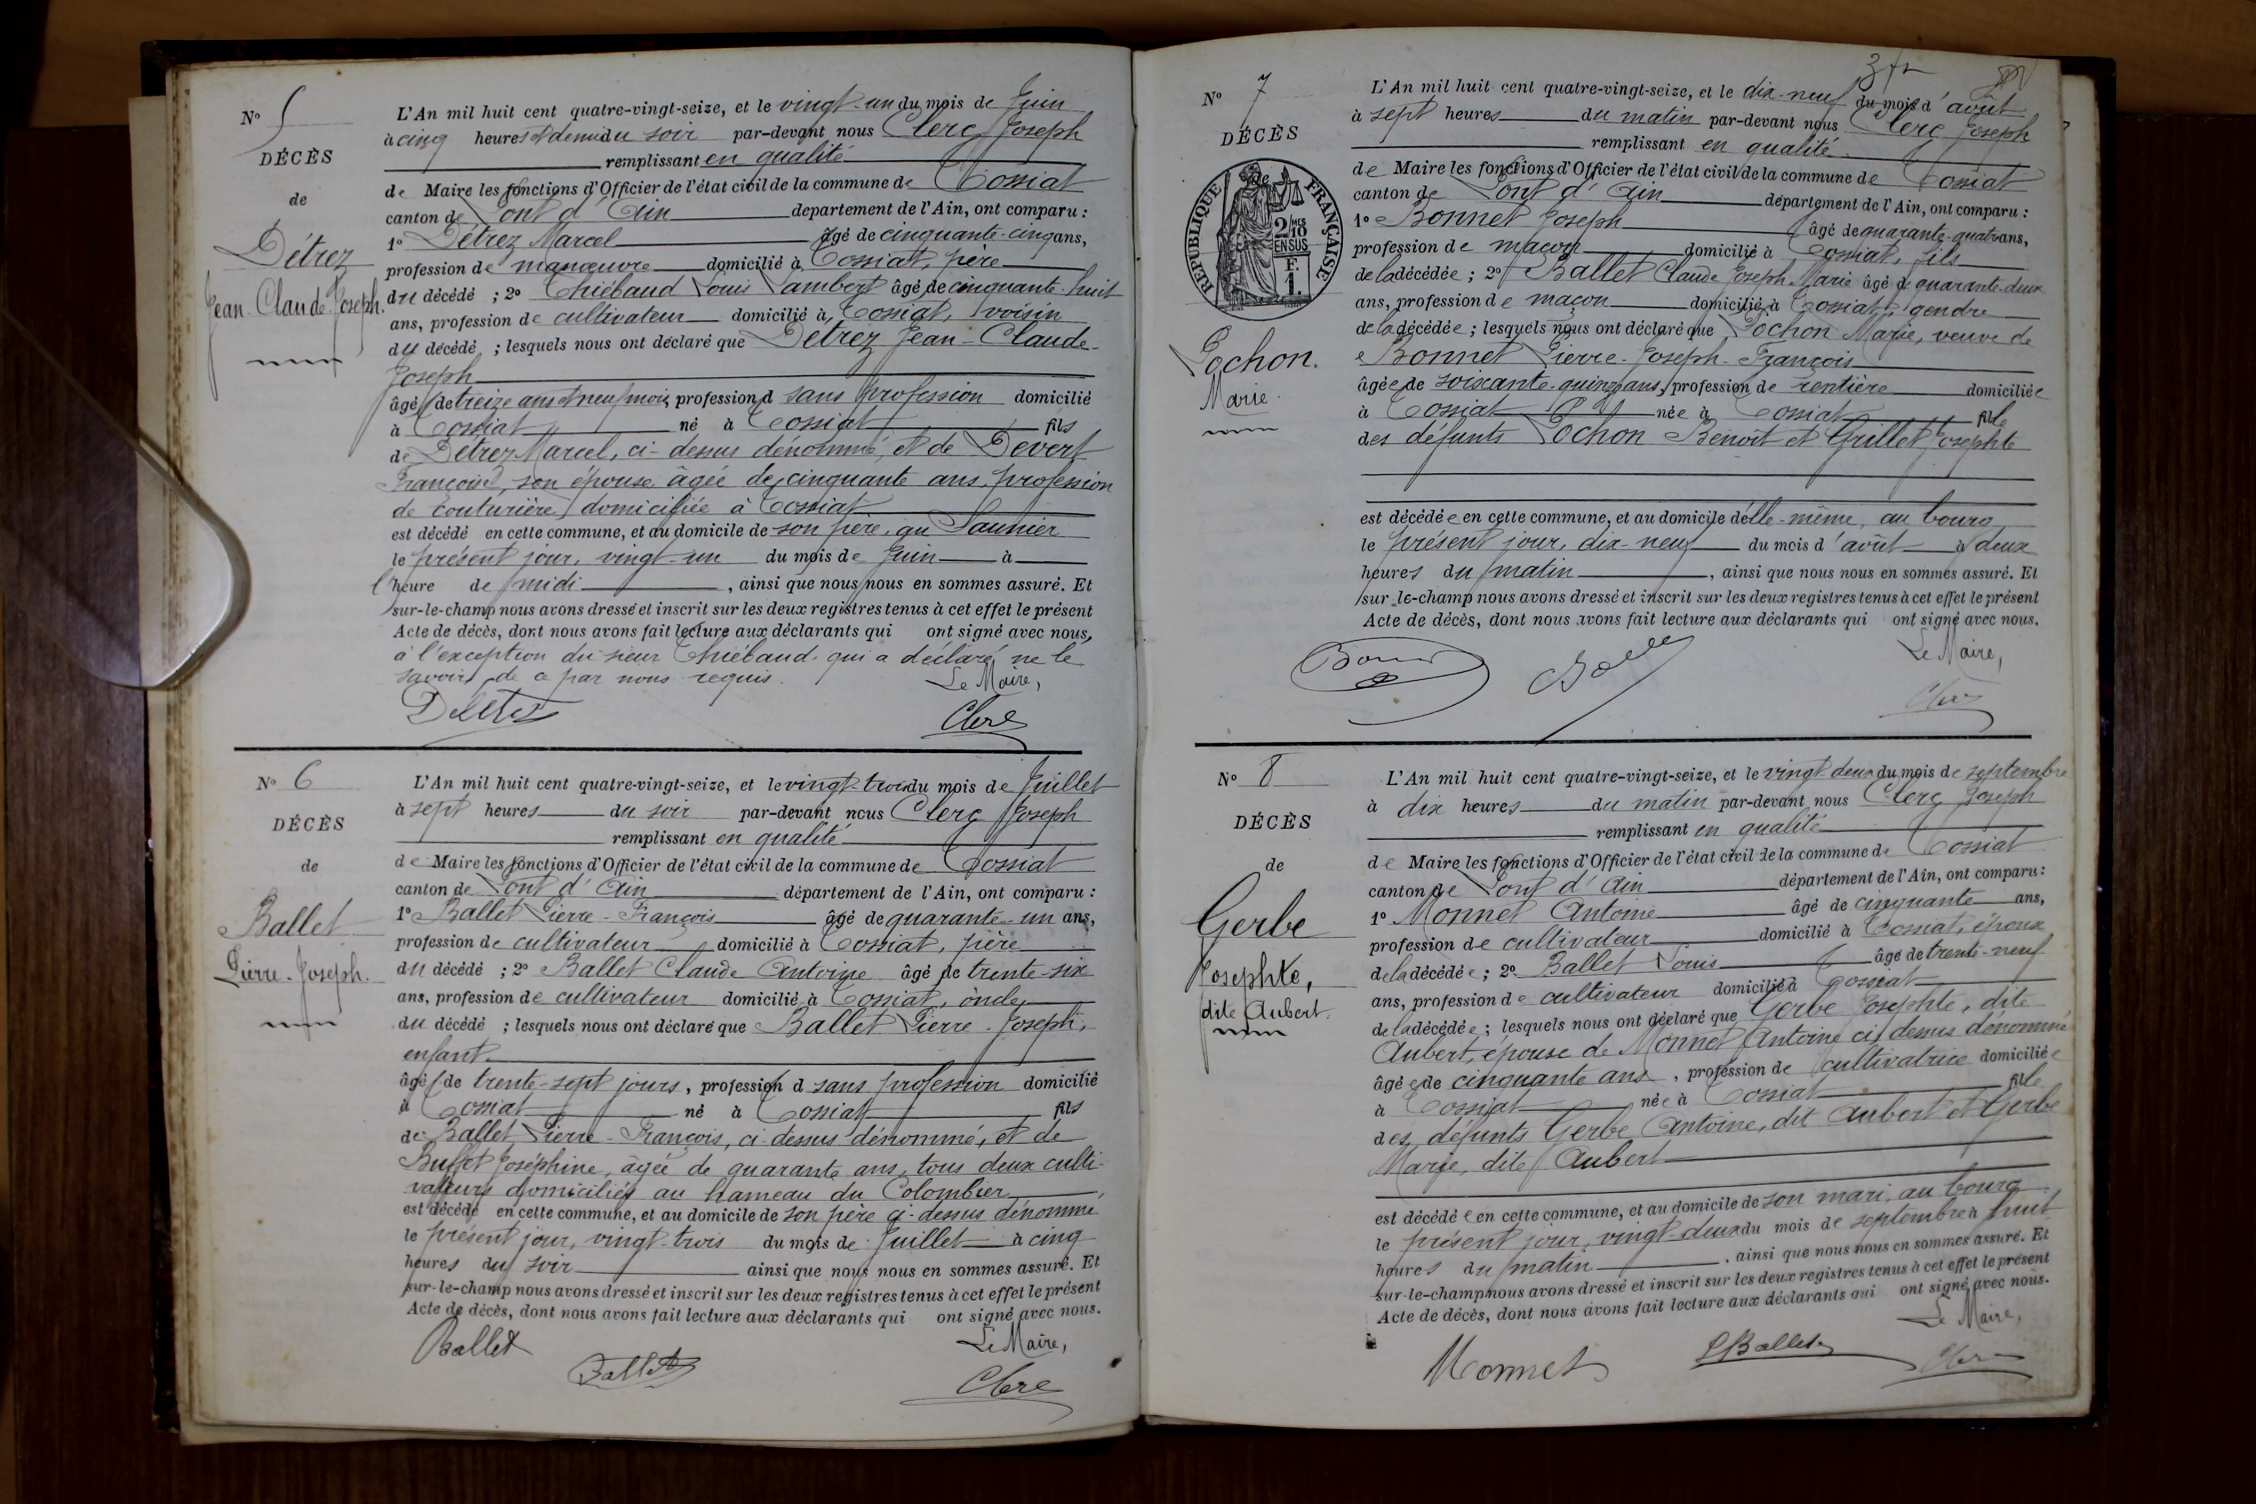 N° 5
DÉCÈS
de
Détrez
Jean-Claude-Joseph.
L'An mil huit cent quatre-vingt-seize, et le vingt-un du mois de Juin
à cinq heures et demie du soir par-devant nous Clerc Joseph
remplissant en qualité
de Maire les fonctions d'Officier de l'état civil de la commune de Tossiat
canton de Pont d'Ain département de l'Ain, ont comparu :
1° Détrez Marcel âgé de cinquante-cinq ans,
profession de manœuvre domicilié à Tossiat, père
du décédé ; 2° Thiébaud Louis Lambert âgé de cinquante-huit
ans, profession de cultivateur domicilié à Tossiat, voisin
du décédé ; lesquels nous ont déclaré que Détrez Jean-Claude-
Joseph
âgé de treize ans et neuf mois, profession d sans profession domicilié
à Tossiat né à Tossiat fils
de Détrez Marcel, ci-dessus dénommé, et de Devert
Françoise, son épouse âgée de cinquante ans, profession
de couturière domiciliée à Tossiat
est décédé en cette commune, et au domicile de son père, au Saunier
le présent jour, vingt-un du mois de Juin à
l'heure de midi, ainsi que nous nous en sommes assuré. Et
sur-le-champ nous avons dressé et inscrit sur les deux registres tenus à cet effet le présent
Acte de décès, dont nous avons fait lecture aux déclarants qui ont signé avec nous,
à l'exception du sieur Thiébaud qui a déclaré ne le
savoir, de ce par nous requis.
Le Maire,
Clerc
N° 6
DÉCÈS
de
Ballet
Pierre-Joseph.
L'An mil huit cent quatre-vingt-seize, et le vingt-trois du mois de Juillet
à sept heures du soir par-devant nous Clerc Joseph
remplissant en qualité
de Maire les fonctions d'Officier de l'état civil de la commune de Tossiat
canton de Pont d'Ain département de l'Ain, ont comparu :
1° Ballet Pierre-François âgé de quarante-un ans,
profession de cultivateur domicilié à Tossiat, père
du décédé ; 2° Ballet Claude Antoine âgé de trente-six
ans, profession de cultivateur domicilié à Tossiat, oncle
du décédé ; lesquels nous ont déclaré que Ballet Pierre-Joseph,
enfant
âgé de trente-sept jours, profession d sans profession domicilié
à Tossiat né à Tossiat fils
de Ballet Pierre-François, ci-dessus dénommé, et de
Buffet Joséphine, âgée de quarante ans, tous deux culti-
vateurs domiciliés au hameau du Colombier,
est décédé en cette commune, et au domicile de son père ci-dessus dénommé
le présent jour, vingt-trois du mois de Juillet à cinq
heures du soir ainsi que nous nous en sommes assuré. Et
sur-le-champ nous avons dressé et inscrit sur les deux registres tenus à cet effet le présent
Acte de décès, dont nous avons fait lecture aux déclarants qui ont signé avec nous.
Le Maire,
Ballet
Ballet
Clerc
N° 7
DÉCÈS
de
RÉPUBLIQUE FRANÇAISE
2/10 MES
EN SUS
F.
1.
Pochon.
Marie.
L'An mil huit cent quatre-vingt-seize, et le dix-neuf du mois d'août
à sept heures du matin par-devant nous Clerc Joseph
remplissant en qualité
de Maire les fonctions d'Officier de l'état civil de la commune de Tossiat
canton de Pont d'Ain département de l'Ain, ont comparu :
1° Bonnet Joseph âgé de quarante-quatre ans,
profession de maçon domicilié à Tossiat, fils
de la décédée ; 2° Ballet Claude Joseph Marie âgé de quarante-deux
ans, profession de maçon domicilié à Tossiat, gendre
de la décédée ; lesquels nous ont déclaré que Pochon Marie, veuve de
Bonnet Pierre-Joseph-François
âgée de soixante-quinze ans, profession de rentière domiciliée
à Tossiat née à Tossiat fille
des défunts Pochon Benoît et Grillet Josephte
est décédée en cette commune, et au domicile d'elle-même, au bourg
le présent jour, dix-neuf du mois d'août à deux
heures du matin, ainsi que nous nous en sommes assuré. Et
sur-le-champ nous avons dressé et inscrit sur les deux registres tenus à cet effet le présent
Acte de décès, dont nous avons fait lecture aux déclarants qui ont signé avec nous.
Le Maire,
Clerc
N° 8
DÉCÈS
de
Gerbe
Josephte,
dite Aubert.
L'An mil huit cent quatre-vingt-seize, et le vingt-deux du mois de septembre
à dix heures du matin par-devant nous Clerc Joseph
remplissant en qualité
de Maire les fonctions d'Officier de l'état civil de la commune de Tossiat
canton de Pont d'Ain département de l'Ain, ont comparu :
1° Monnet Antoine âgé de cinquante ans,
profession de cultivateur domicilié à Tossiat, époux
de la décédée ; 2° Ballet Louis âgé de trente-neuf
ans, profession de cultivateur domicilié à Tossiat
de la décédée ; lesquels nous ont déclaré que Gerbe Josephte, dite
Aubert, épouse de Monnet Antoine ci-dessus dénommé
âgée de cinquante ans, profession de cultivatrice domiciliée
à Tossiat née à Tossiat fille
des défunts Gerbe Antoine, dit Aubert et Gerbe
Marie, dite Aubert
est décédée en cette commune, et au domicile de son mari, au bourg
le présent jour, vingt-deux du mois de septembre à huit
heures du matin, ainsi que nous nous en sommes assuré. Et
sur-le-champ nous avons dressé et inscrit sur les deux registres tenus à cet effet le présent
Acte de décès, dont nous avons fait lecture aux déclarants qui ont signé avec nous.
Le Maire,
Monnet
L Ballet
Clerc